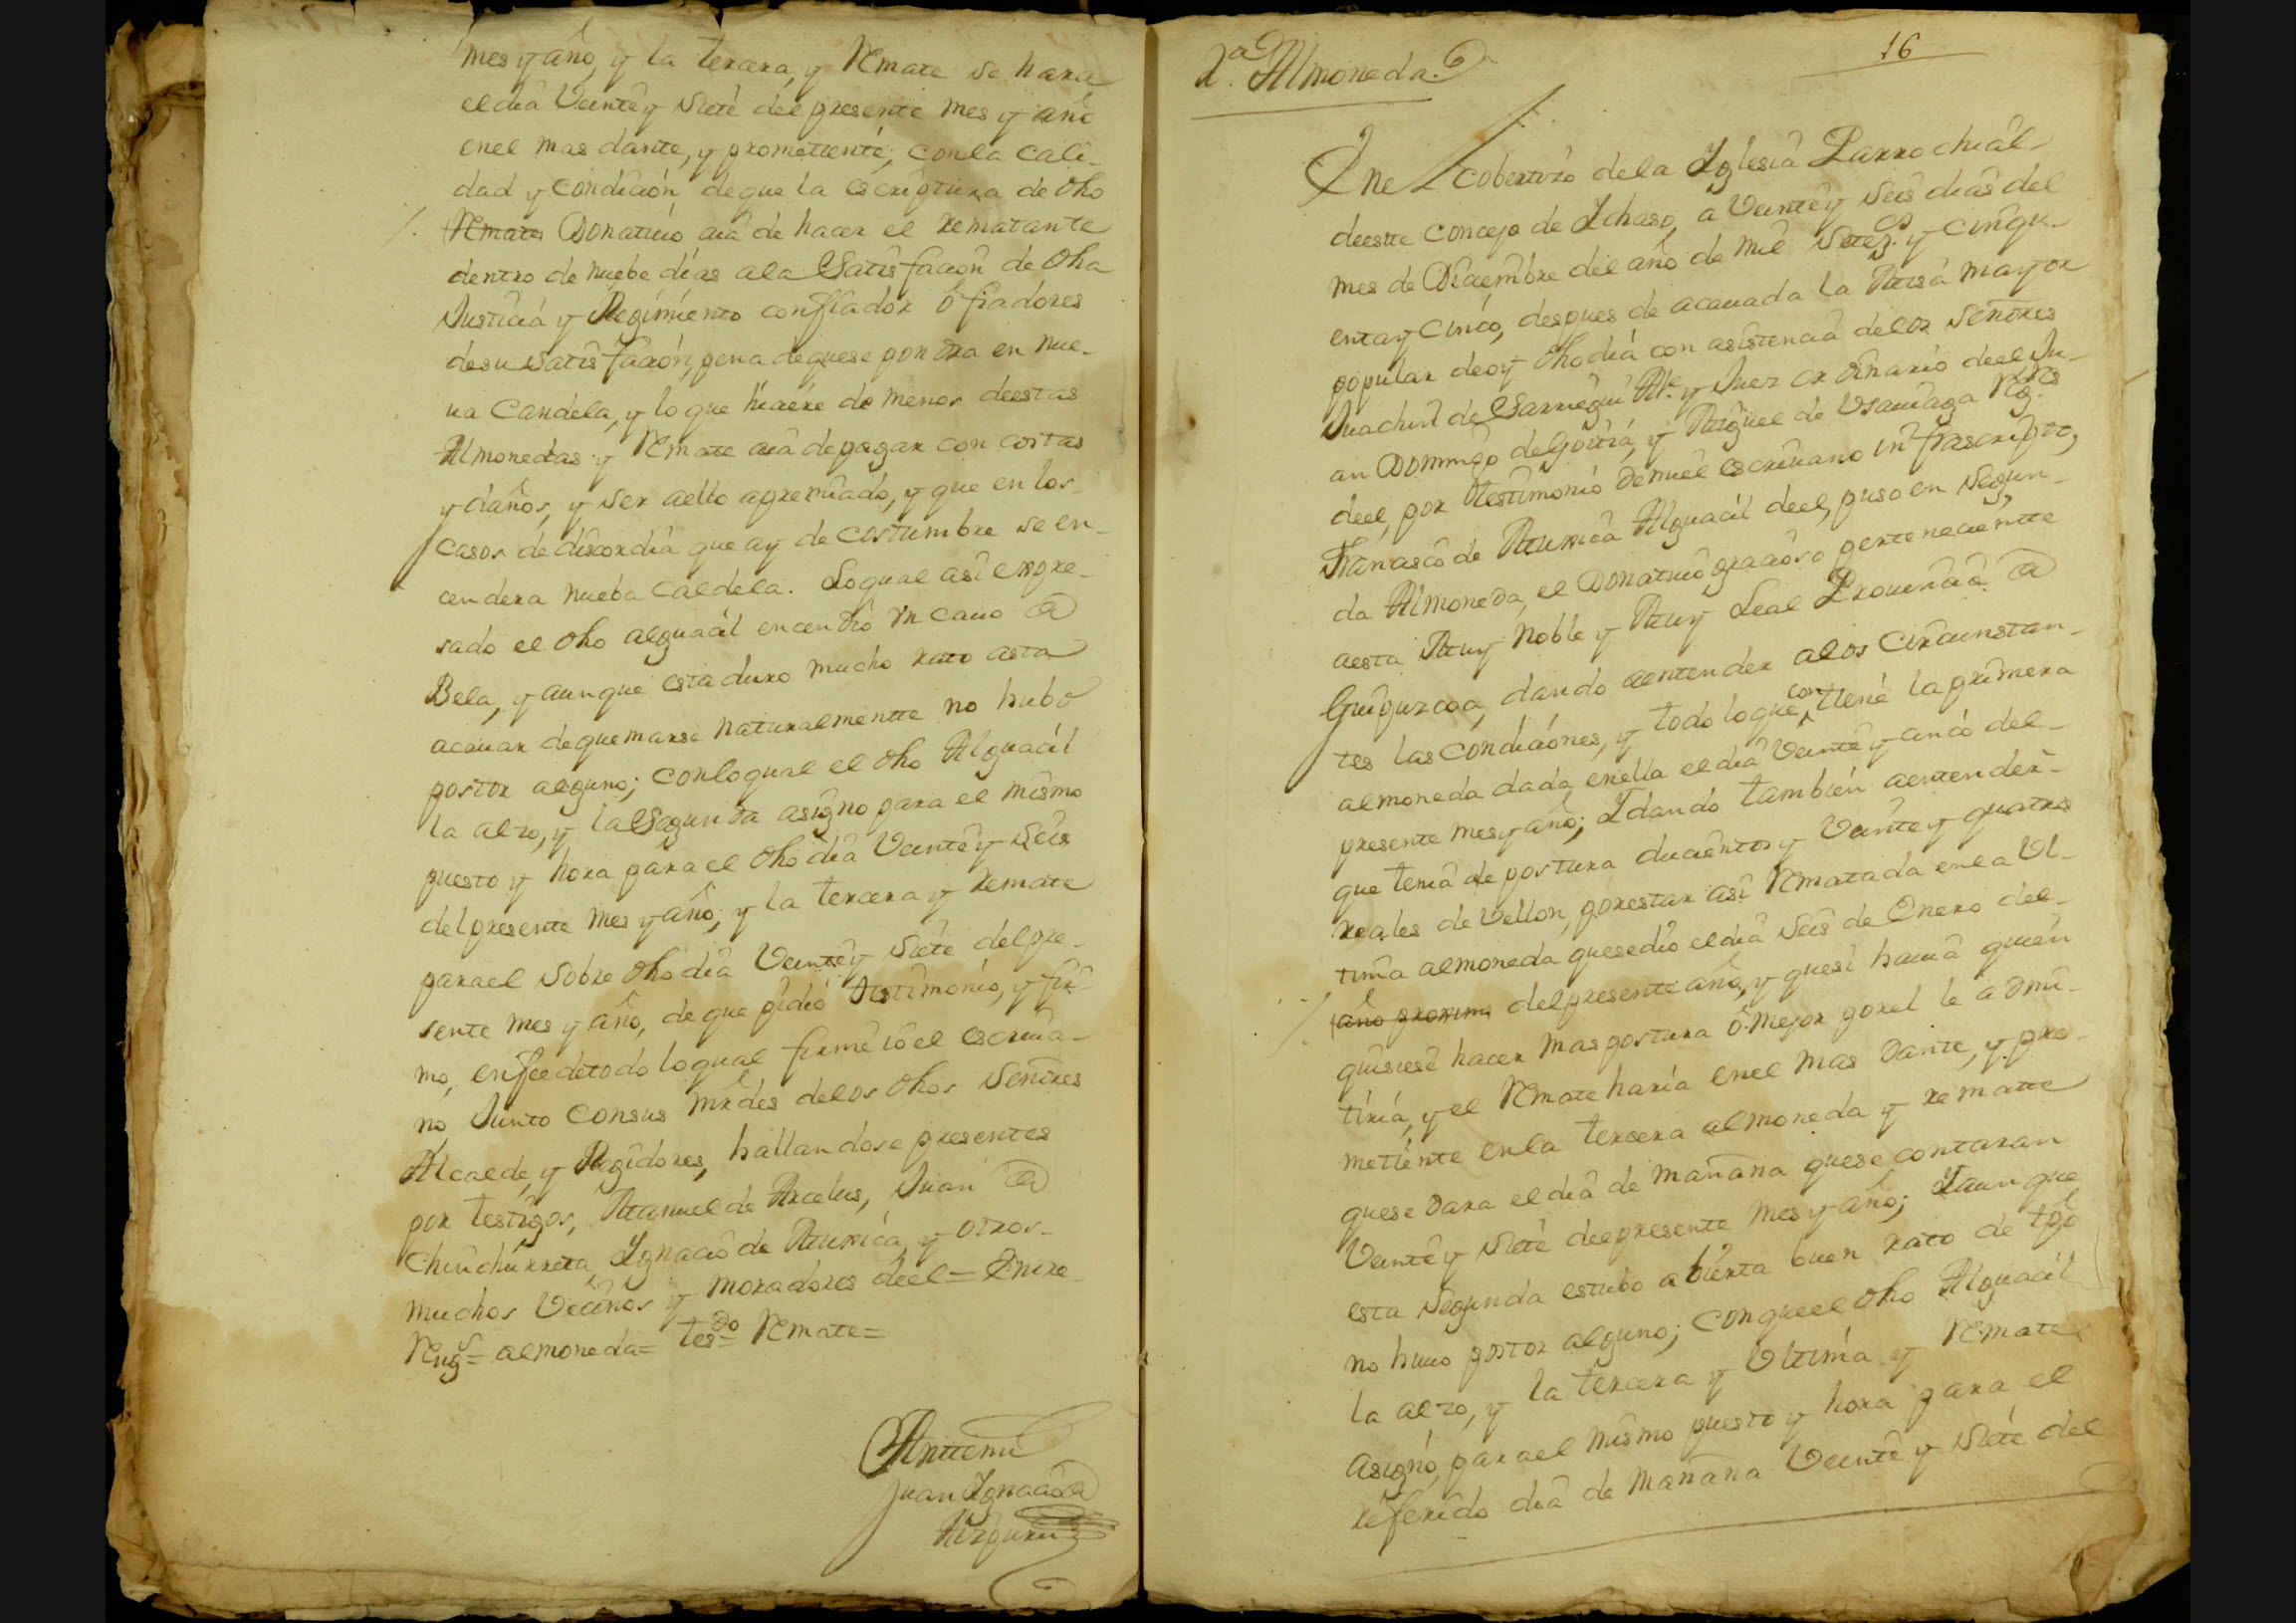 mes y año, y la tercera, y Remate se hara
el dia Veinte y Siete del presente mes y año
en el mas dante, y prometiente, con la cali-
dad y condicion, de que la escriptura de dho
Remate Donativo aia de hacer el rematante
dentro de nuebe dias a la Satisfacion de dha
Justicia y Regimiento con fiador ô fiadores
de su satisfacion, pena de que se pondra en nue-
va Candela, y lo que hiciere de menos de estas
Almonedas y Remate aia de pagar con costas
y daños, y ser a ello apremiado, y que en los
casos de discordia que ay de costumbre se en-
cendera nueba caldela. Lo qual asi expre-
sado el dho alguacil encendio un cavo @
Bela, y aunque esta duro mucho rato asta
acavar de quemarse naturalmentte no hubo
postor alguno; con lo qual el dho Alguacil
la alzo, y la Segunda asigno para el mismo
puesto y hora para el dho dia Veinte y Seis
del presente mes y año; y la tercera y Remate
para el sobre dho dia Veinte y Siete del pre-
sente mes y año, de que pidio testimonio, y fir-
mo, en fee de todo lo qual firme io el escriva-
no Junto con sus mrdes de los dhos Señores
Alcalde, y Regidores, hallandose presentes
por testigos, Manuel de Arcelus, Juan @
Chinchurreta, Ignacio de Murica, y otros
muchos Vecinos y moradores de el = Entre
Rengs = almoneda = tesdo = Remate =
Antte mi
Juan Ignacio @
Aizpuru
2.ª Almoneda.
16
En el cobertizo de la Iglesia Parrochial
de estte concejo de Ichaso, a Veinte y Seis dias del
mes de Diciembre del año de mil Setez.s y cinqu-
enta y Cinco, despues de acavada la Misa mayor
popular de oy dho dia con asistencia de los Señores
Juachin de Sarriegui Alc.e y Juez ordinario de el, Ju-
an Domingo de Goitia, y Miguel de Usaviaga Reg.res
de el, por testimonio de mi el escrivano infrascripto,
Francisco de Murica Alguacil de el, puso en Segun-
da Almoneda, el Donativo gracioso pertenecientte
a esta Muy Noble y Muy Leal Provincia @
Guipuzcoa, dando a entender a los Circunstan-
tes las condiciones, y todo lo que contiene la primera
almoneda dada en ella el dia Veinte y cinco del
presente mes y año; I dando tambien a entender
que tenia de postura ducientos y Veinte y quatro
reales de Vellon, por estar asi Rematada en la Ul-
tima almoneda que se dio el dia Seis de Enero del
año proximo del presente año, y que si havia quien
quisiese hacer mas postura ô mejor por el le admi-
tiria, y el Remate haria en el mas dante, y pro-
metiente en la tercera almoneda y rematte
que se dara el dia de mañana que se contaran
Veinte y Siete de el presente mes y año; I aunque
esta Segunda estubo abierta buen rato de tpo
no huvo postor alguno; con que el dho Alguacil
la alzo, y la tercera y Ultima y Remate
asigno, para el mismo puesto y hora para el
referido dia de mañana Veinte y Siete del